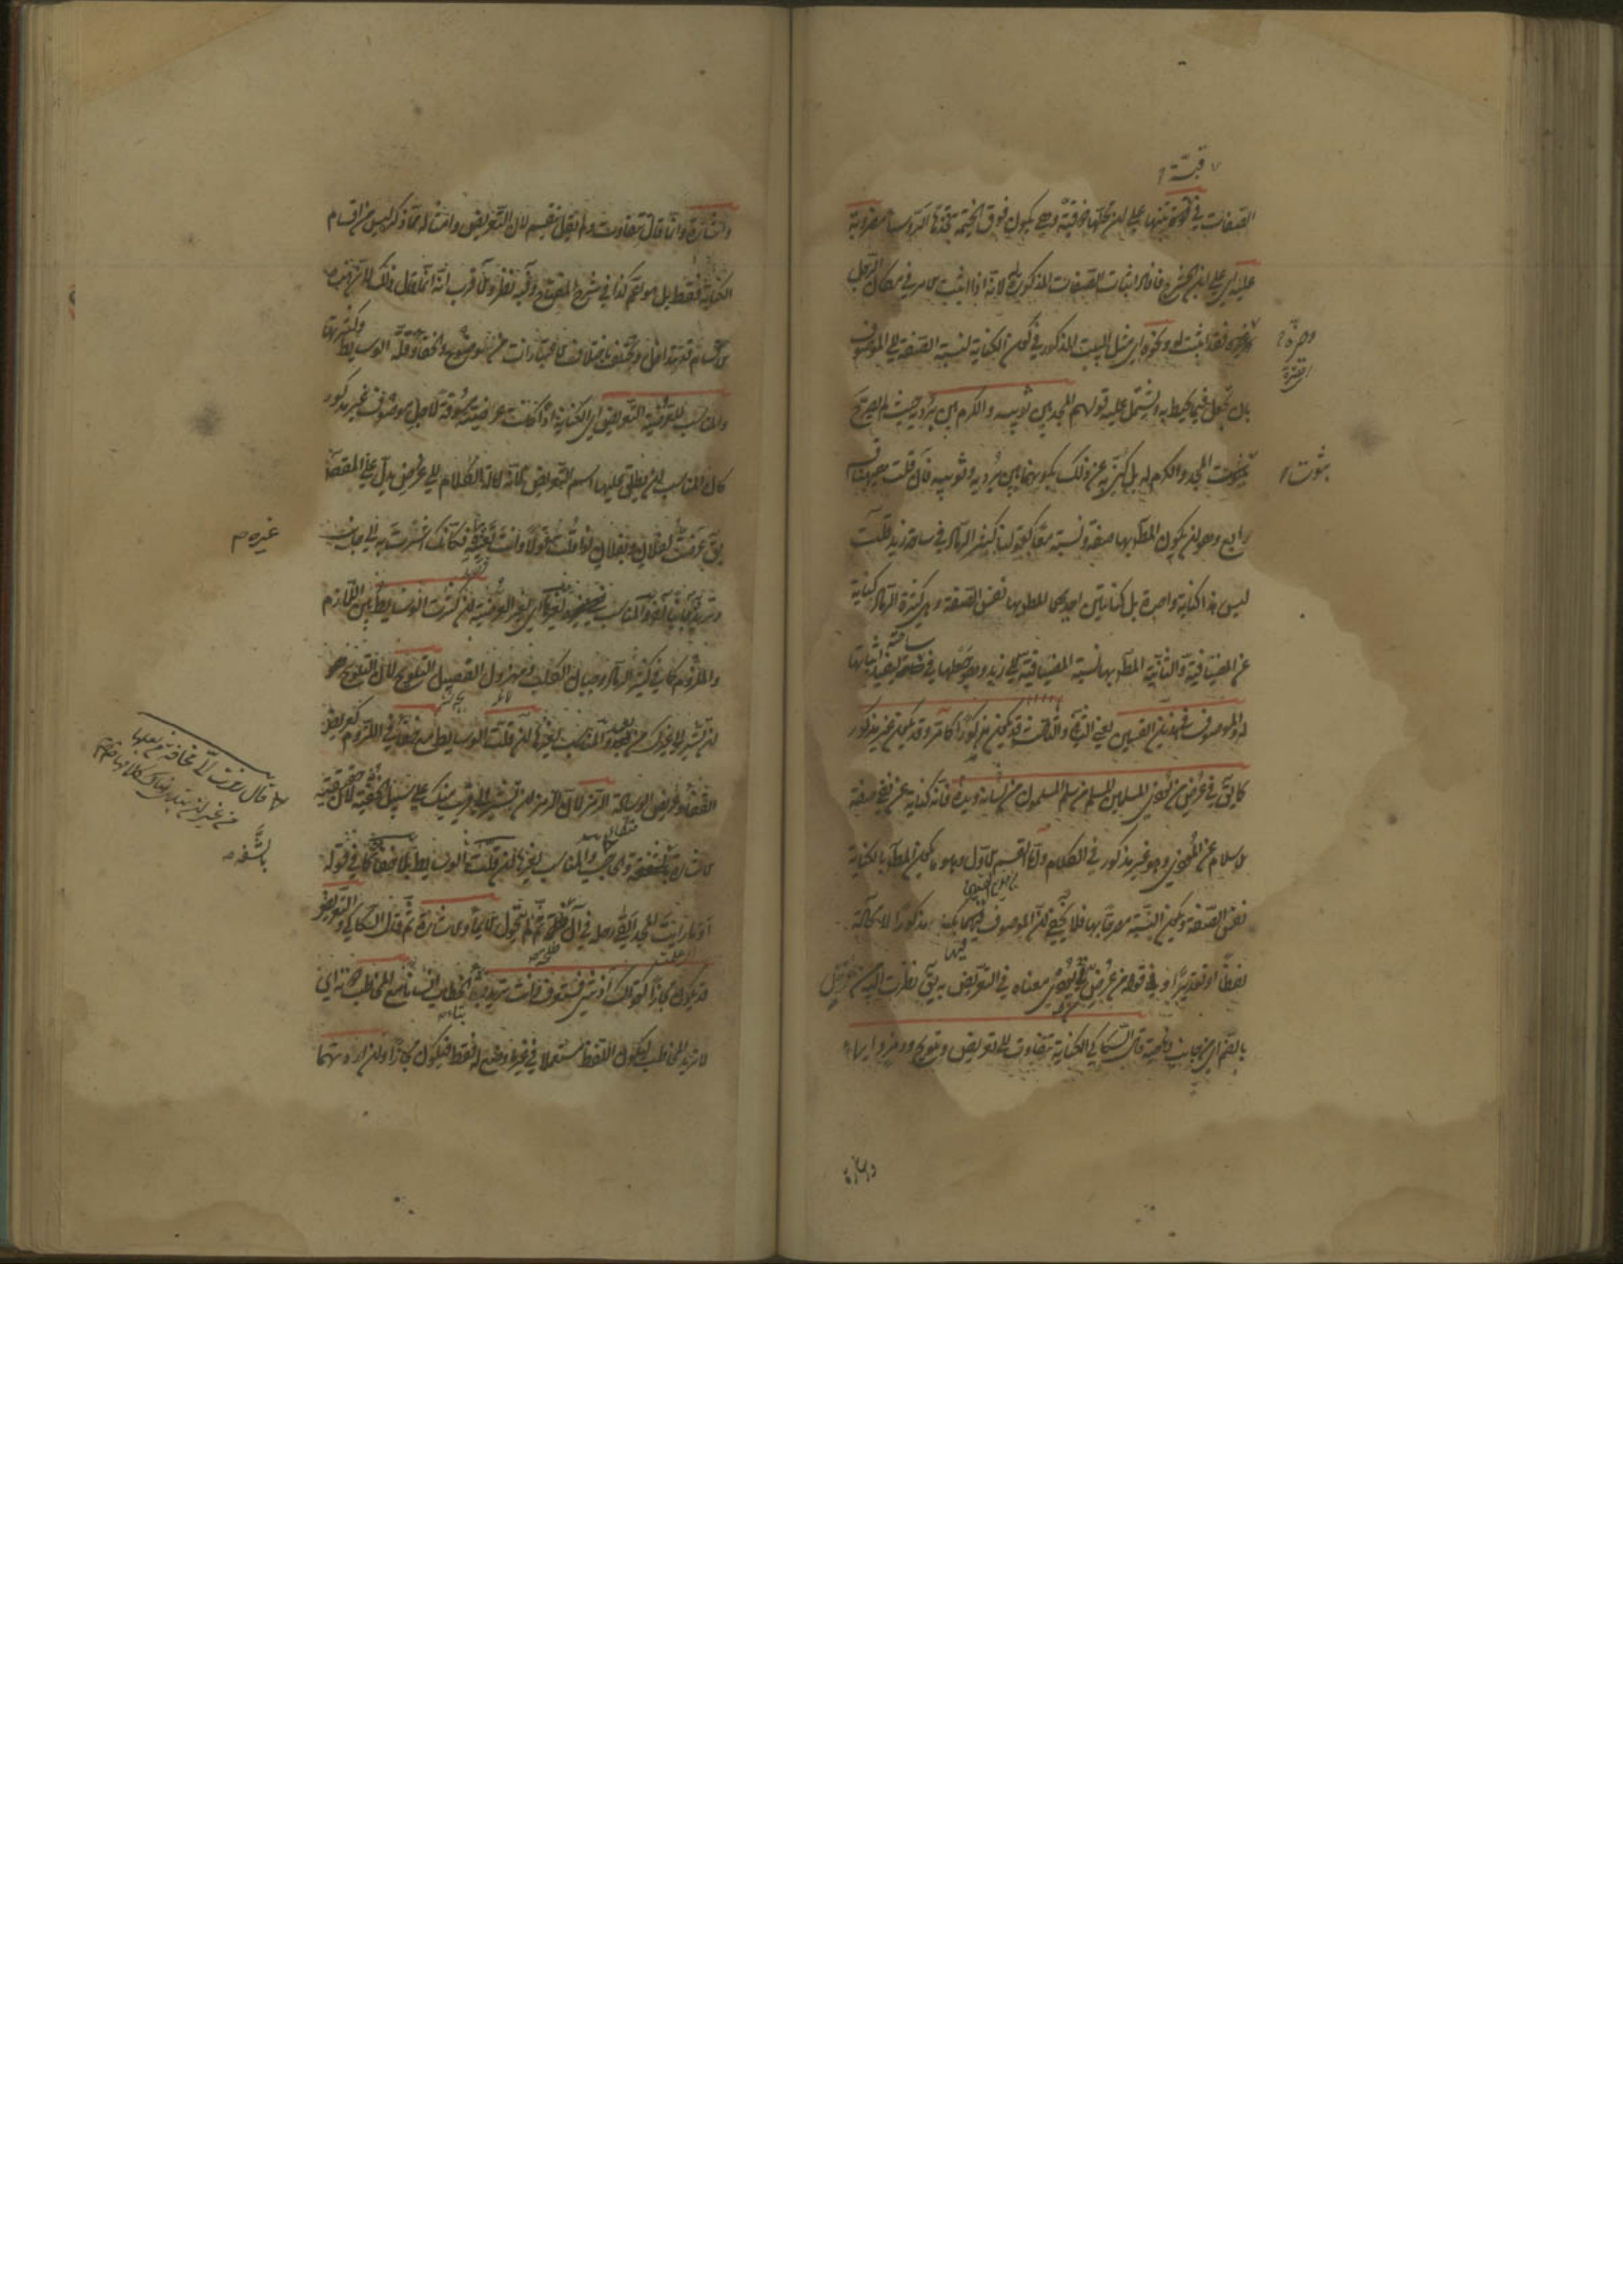 قبة
الصفات في قبة تنبيها على ان محلها ذو قبة وهي يكون فوق الخيمة يتخذها الرؤساء مضروبة
عليه اي على ابن الحشرج فافاد اثبات الصفات المذكورة له لانه اذا اثبت الامر في مكان الرجل
وحيزه فقد اثبت له ونحوه اي مثل البيت المذكور في كون الكناية لنسبة الصفة الى الموصوف
بان تجعل فيما يحيط به ويشتمل عليه قولهم المجد بين ثوبيه والكرم بين برديه حيث لم يصرح
بثبوت المجد والكرم له بل كنى عن ذلك بكونهما بين برديه وثوبيه فان قلت ههنا قسم
رابع وهو ان يكون المط بها صفة ونسبة معا كقولنا كثر الرماد في ساحة زيد قلت
ليس هذا كناية واحدة بل كنايتين احديهما المطلوب بها نفس الصفة وهي كثرة الرماد كناية
عن المضيافية والثانية المط بها نسبة المضيافية الى زيد وهو جعلها في ساحته ليفيد اثباتها
له والموصوف في هذين القسمين يعني الثاني والثالث قد يكون مذكورا كما مر وقد يكون غير مذكور
كما يق في عرض من يؤذي المسلمين المسلم من سلم المسلمون من لسانه ويده فانه كناية عن نفي صفة
الاسلام عن المؤذي وهو غير مذكور في الكلام واما القسم الاول وهو ما يكون المط بالكناية
نفس الصفة ويكون النسبة مصرحا بها فلا يخفى ان الموصوف فيها يكون مذكورا لا محالة
لفظا او تقديرا وفي قوله من عرض من يؤذي معناه في التعريض به يق نظرت اليه من عرض
بالضم اي من جانب وناحية قال السكاكي الكناية تتفاوت الى تعريض وتلويح ورمز وايماء
وحيزه
بثبوت
واشارة وانما قال تتفاوت ولم يقل تنقسم لان التعريض وامثاله مما ذكر ليس من اقسام
الكناية فقط بل هو اعم كذا في شرح المفتاح وفيه نظر والاقرب انه انما قال ذلك لان هذه
الاقسام قد تتداخل وتختلف باختلاف الاعتبارات من الوضوح والخفاء وقلة الوسايط وكثرتها
والمناسب للعرضية التعريض اي الكناية اذا كانت عرضية مسوقة لاجل موصوف غير مذكور
كان المناسب ان يطلق عليها اسم التعريض لانه امالة الكلام الى عرض يدل على المقصود
يق عرضت لفلان وبفلان اذا قلت قولا وانت تعنيه فكانك اشرت به الى جانب
وتريد جانبا آخر والمناسب لغيرها اي لغير العرضية ان كثرت الوسايط بين اللازم
والملزوم كما في كثير الرماد وجبان الكلب ومهزول الفصيل التلويح لان التلويح هو
ان تشير الى غيرك من بعد والمناسب لغيرها ان قلت الوسايط مع خفاء في اللزوم كعريض
القفا وعريض الوسادة الرمز لان الرمز ان تشير الى قريب منك على سبيل الخفية لان حقيقته
الاشارة بالشفة والحاجب والمناسب لغيرها ان قلت الوسايط بلا خفاء كما في قوله
او ما رايت المجد القى رحله في آل طلحة ثم لم يتحول الايماء والاشارة ثم قال السكاكي والتعريض
قد يكون مجازا كقولك آذيتني فستعرف وانت تريد بتاء الخطاب انسانا مع المخاطب دونه اي
لا تريد المخاطب ليكون اللفظ مستعملا في غير ما وضع له فقط فيكون مجازا وان اردتهما
غيره م
قال رمزت الي مخافة من بعلها
من غير ان تبدي هناك كلامها